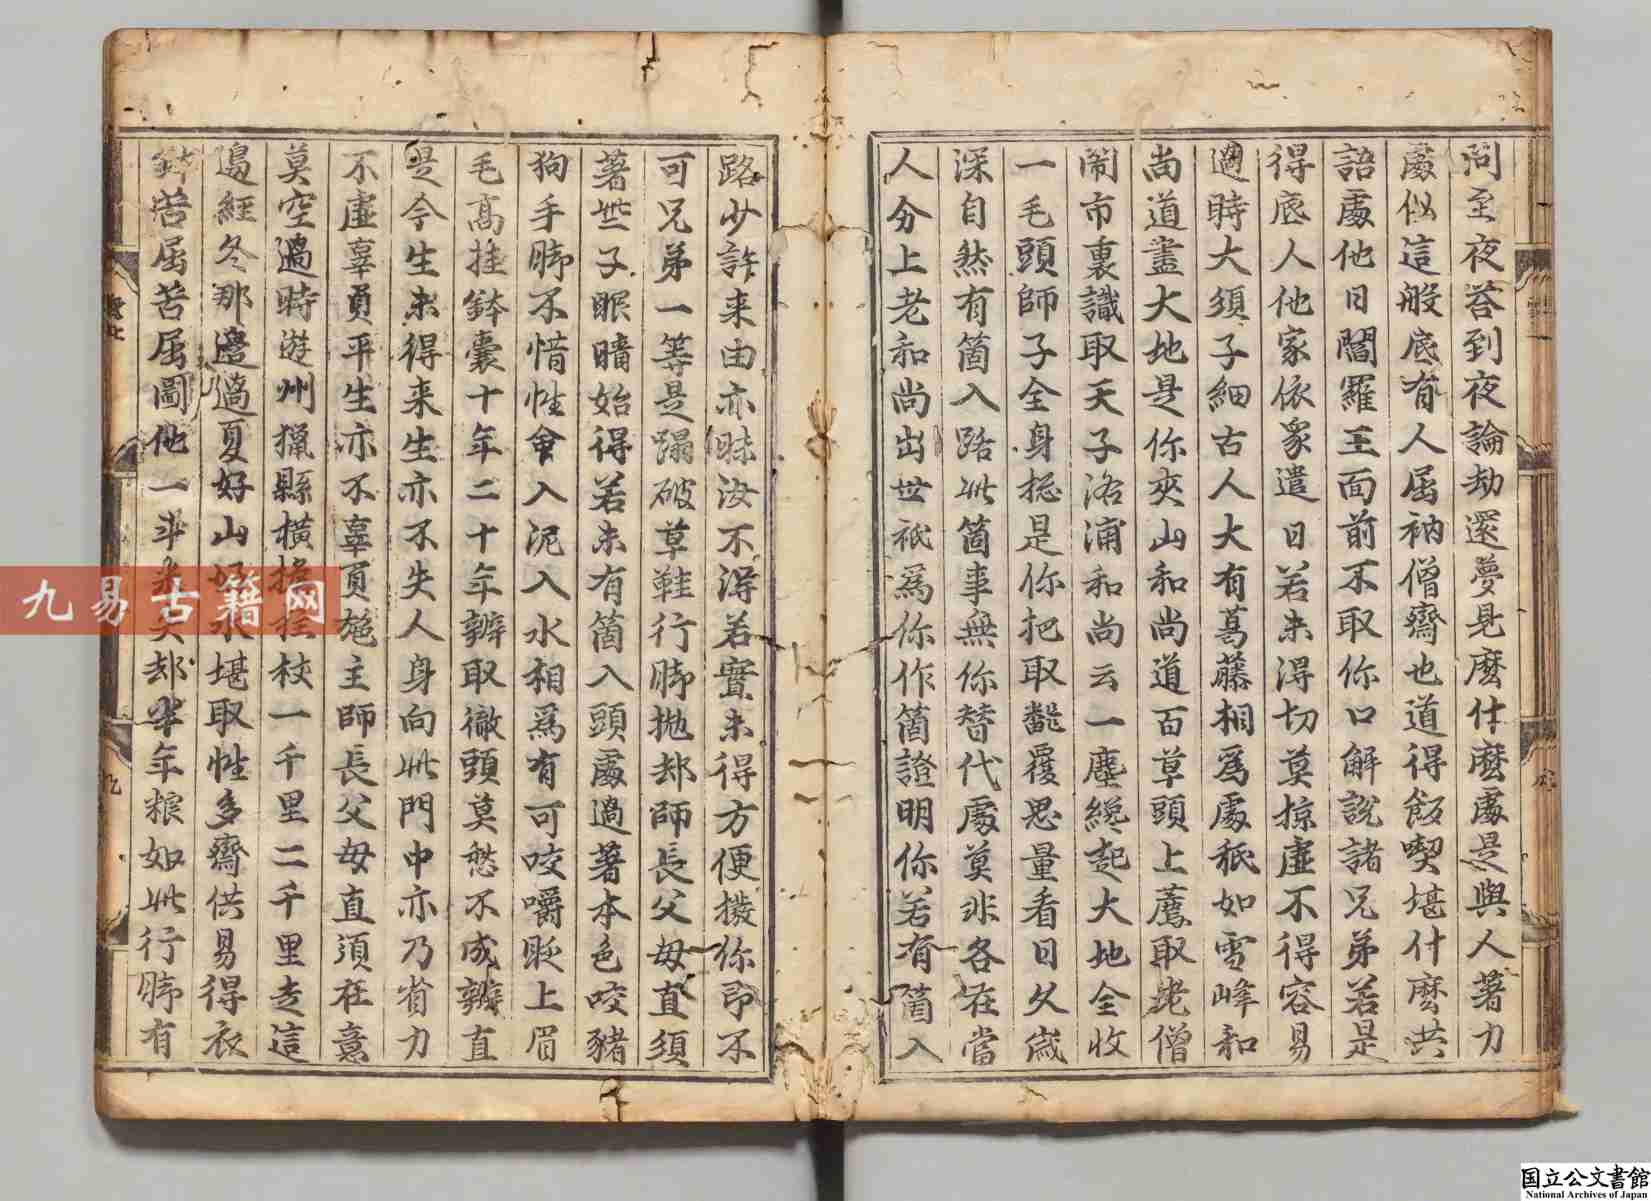 問至夜荅到夜論劫還夢見麽什麽處是與人著力
處似這般底有人屈衲僧齋也道得飯喫堪什麽共
語處他日閻羅王面前不取你口解說諸兄弟若是
得底人他家依衆遣日若未得切莫掠虛不得容易
過時大須子細古人大有葛藤相爲處秖如雪峰和
尚道盡大地是你夾山和尚道百草頭上薦取老僧
鬧市裏識取天子洛浦和尚云一塵纔起大地全收
一毛頭師子全身揔是你把取飜覆思量看日久歲
深自然有箇入路此箇事無你替代處莫非各在當
人分上老和尚出世秖爲你作箇證明你若有箇入
路少許来由亦昧汝不得若實未得方便撥你即不
可兄弟一等是蹋破草鞋行脚抛却師長父母直須
著些子眼睛始得若未有箇入頭處過著本色咬豬
狗手脚不惜性命入泥入水相爲有可咬嚼眨上眉
毛高挂鉢囊十年二十年辦取徹頭莫愁不成辦直
是今生未得来生亦不失人身向此門中亦乃省力
不虛辜負平生亦不辜負施主師長父母直須在意
莫空過時遊州獵縣橫擔拄杖一千里二千里走這
邊經冬那邊過夏好山好水堪取性多齋供易得衣
鉢苦屈苦屈圖他一斗米失却半年粮如此行脚有
九易古籍网
国立公文書館
National Archives of Japan